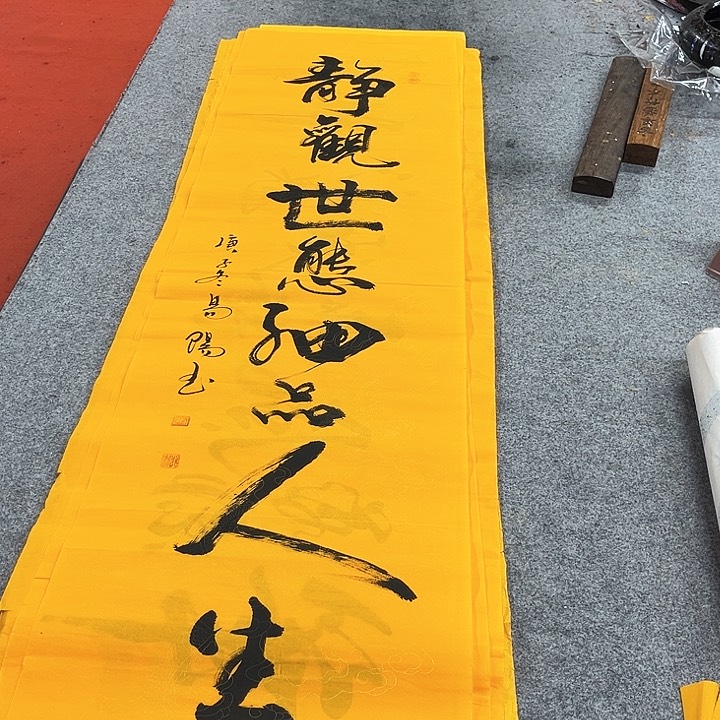 靜觀世態細品人生
庚子冬昜陽书